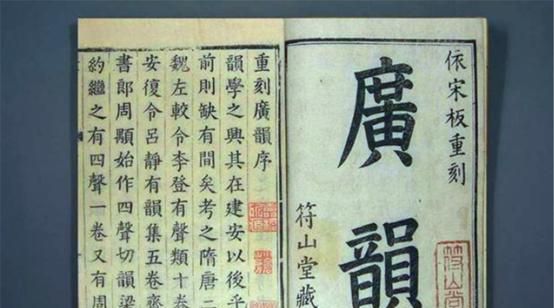 依宋板重刻
廣韻
符山堂藏
重刻廣韻序
韻學之興其在建安以後乎
前則缺有間矣考之隋唐二
魏左較令李登有聲類十卷
安復令呂靜有韻集五卷齊
書郎周顒始作四聲切韻梁
約繼之有四聲一卷又有周